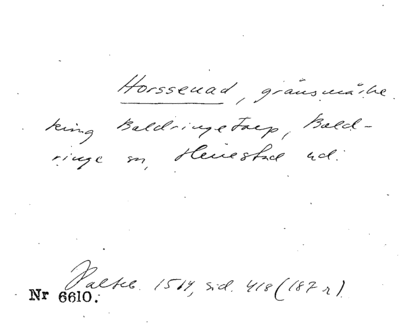 Horssenad, gränsmärke
kring Baldringetorp, Bald-
ringe sn, Herrestad hd.
Palteb. 1514, sid. 418 (187 r).
Nr 6610.